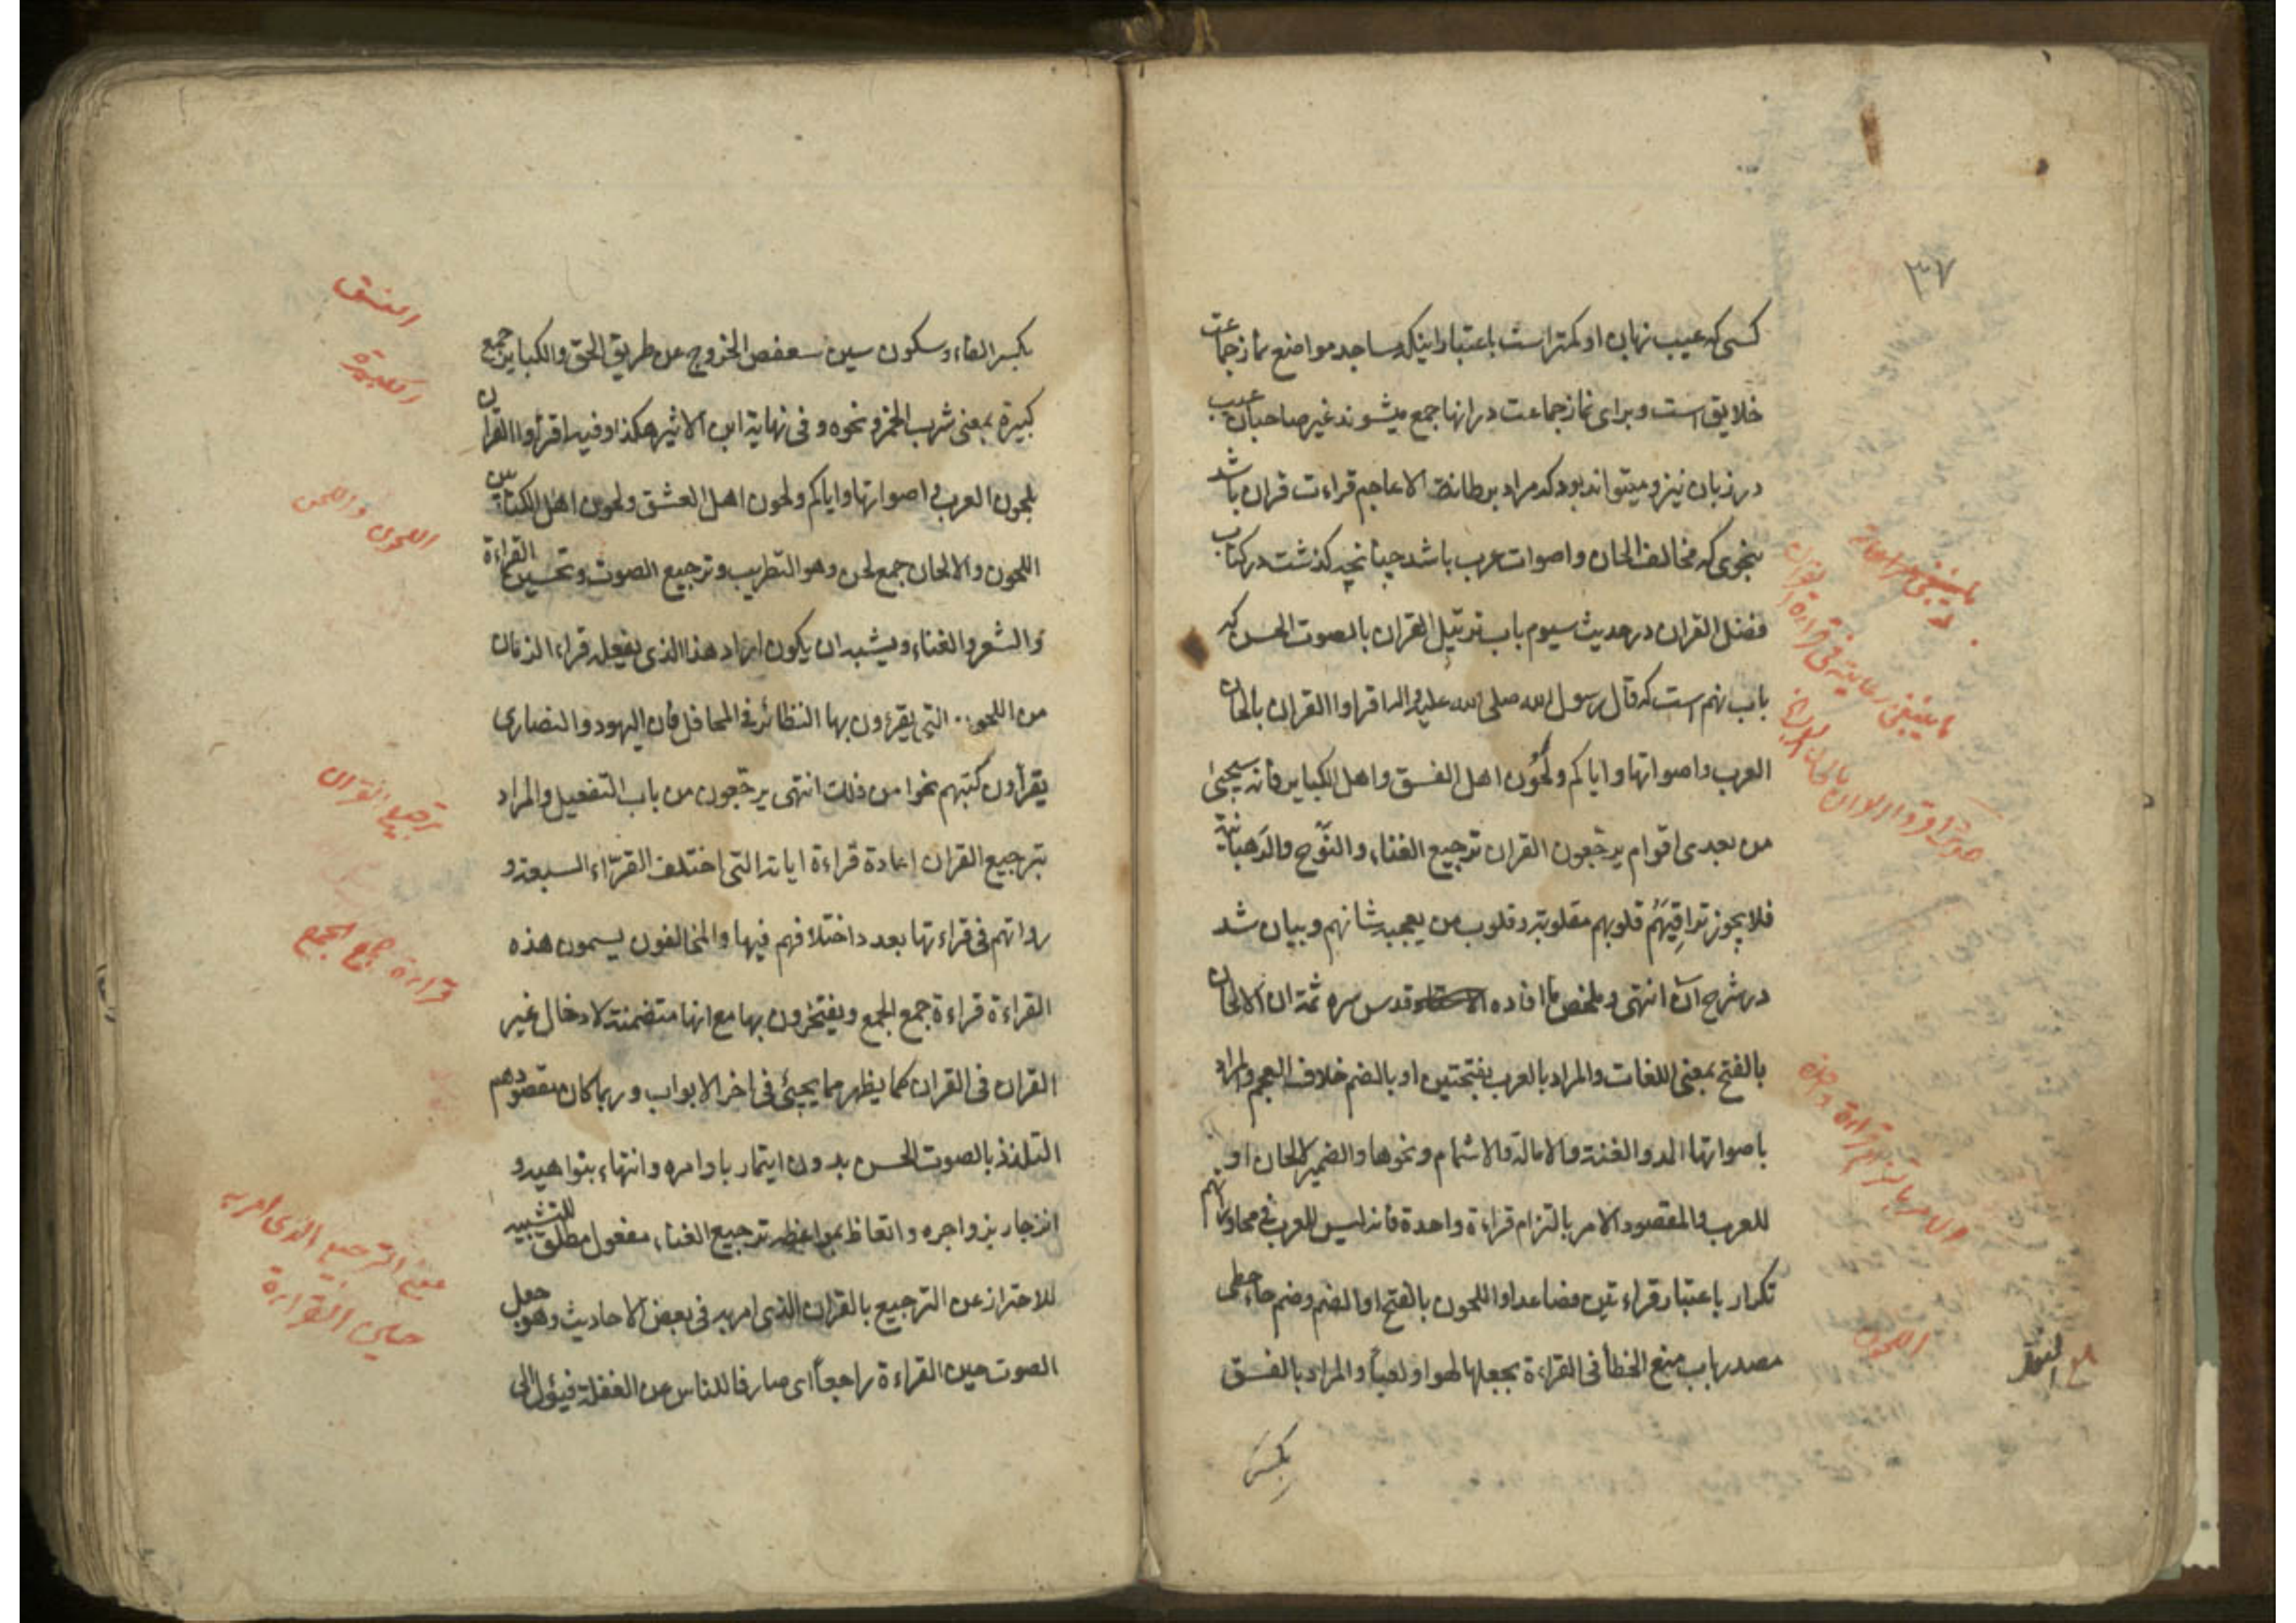 ٣٧
کسی که عیب نهان او کمتر است باعتبار اینکه مساجد مواضع نماز جماعت
خلایق است و برای نماز جماعت در انها جمع میشوند غیر صاحبان عیب
در زبان نیز و میتواند بود که مراد برطانة الاعاجم قراءت قران باشد
بنحوی که مخالف الحان و اصوات عرب باشد چنانچه کذشت در کتاب
فضل القران در حدیث سیوم باب ترتیل القران بالصوت الحسن که
باب نهم است که قال رسول الله صلی الله علیه واله اقراوا القران بالحان
العرب واصواتها وایاکم ولحون اهل الفسق واهل الکبایر فانه سیجیئ
من بعدی اقوام یرجّعون القران ترجیع الغناء والنَّوح والرَهبانیّة
فلا یجوز تراقیَهُم قلوبهم مقلوبة وقلوب من یعجبه شانهم وبیان شد
در شرح آن انتهی وملخص ما افاده قدس سره ثمة ان الالحان
بالفتح بمعنی اللغات والمراد بالعرب بفتحتین او بالضم خلاف العجم والمراد
باصواتها المد والغنة والامالة والاشمام ونحوها والضمیر للالحان او
للعرب والمقصود الامر بالتزام قراءة واحدة فانه لیس للعرب فی محاوراتهم
تکرار باعتبار قراءتین فصاعدا واللحون بالفتح او الضم وضم حاء حطی
مصدر باب منع الخطأ فی القراءة بجعلها لهوا ولعبا والمراد بالفسق
بکسر
ما ینبغی رعایته فی قراءة القران
حدیث اقروا القران بالحان العرب
الامر بالتزام قراءة واحدة
اللحون
بکسر الفاء وسکون سین سعفص الخروج عن طریق الحق والکبایر جمع
کبیرة بمعنی شرب الخمر ونحوه وفی نهایة ابن الاثیر هکذا وفیه اقرأوا القران
بلحون العرب واصواتها وایاکم ولحون اهل العشق ولحون اهل الکتابین
اللحون والالحان جمع لحن وهو التطریب وترجیع الصوت وتحسین القراءة
والشعر والغناء ویشبه ان یکون اراد هذا الذی یفعله قراء الزمان
من اللحون التی یقرءون بها النظائر فی المحافل فان الیهود والنصاری
یقرأون کتبهم نحوا من ذلک انتهی یرجّعون من باب التفعیل والمراد
بترجیع القران اعادة قراءة ایاته التی اختلف القرّاء السبعة و
رواتهم فی قراءتها بعد داختلافهم فیها والمخالفون یسمون هذه
القراءة قراءة جمع الجمع ویفتخرون بها مع انها متضمنة لادخال غیر
القران فی القران کما یظهر مما یجیئ فی اخر الابواب وربما کان مقصودهم
التلذذ بالصوت الحسن بدون ایتمار باوامره وانتهاء بنواهیه و
انزجار بزواجره واتعاظ بمواعظه ترجیع الغناء مفعول مطلق للتشبیه
للاحتراز عن الترجیع بالقران الذی امر به فی بعض الاحادیث وهو جعل
الصوت حین القراءة راجعاً ای صارفا للناس عن الغفلة فیئول الی
الفسق
الکبیرة
اللحون واللحن
ترجیع القران
قراءة جمع الجمع
معنی الترجیع الذی امر به
حین القراءة